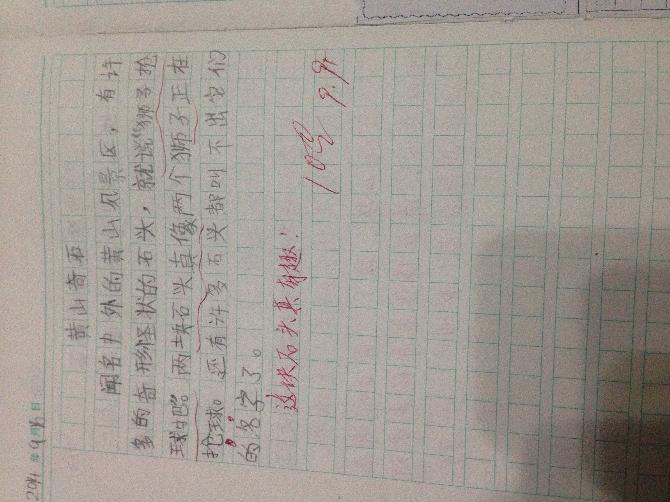 黄山奇石
闻名中外的黄山风景区，有许
多的奇形怪状的石头，就说“狮子抢
球”吧。两块石头真像两个狮子正在
抢球。还有许多石头都叫不出它们
的名字了。
这块石头真有趣！
9.9